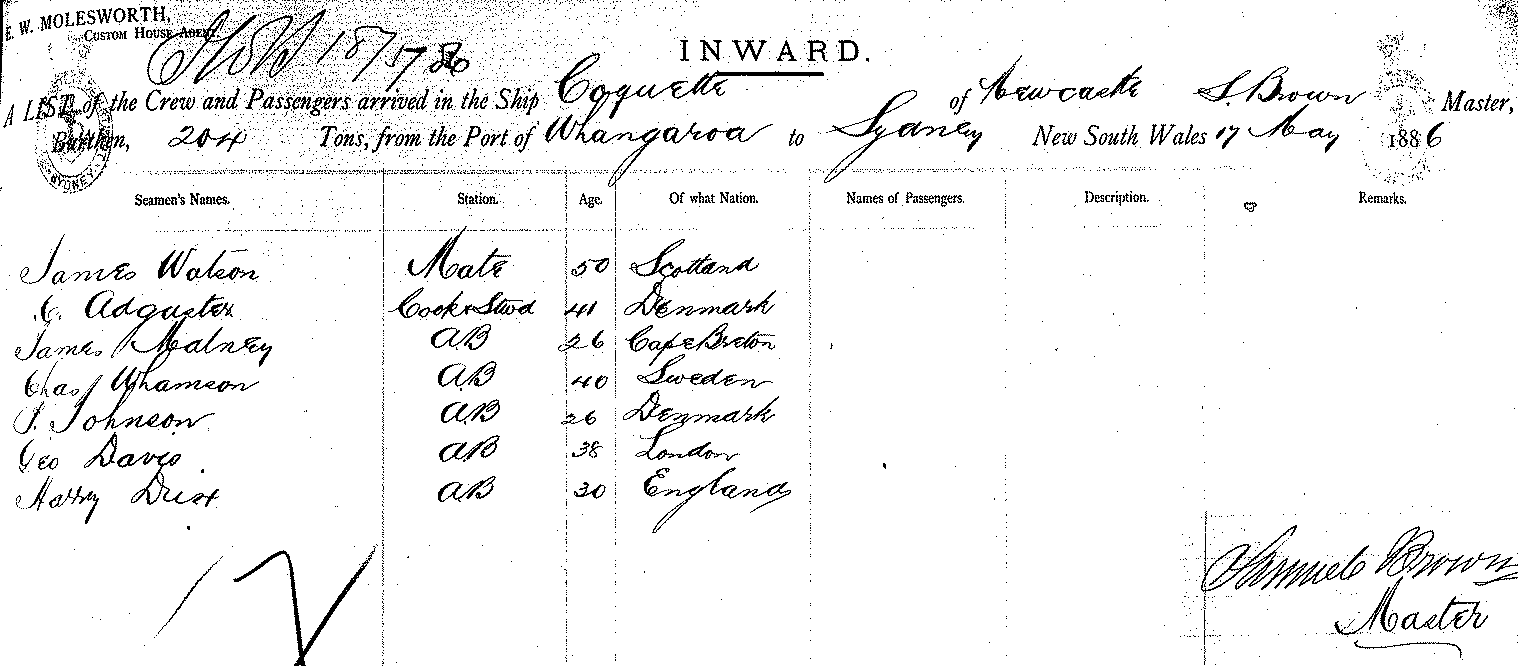 E. W. MOLESWORTH,
CUSTOM HOUSE AGENT.
18/5/86
INWARD.
A LIST of the Crew and Passengers arrived in the Ship Coquette of Newcastle S. Brown Master,
Burthen, 204 Tons, from the Port of Whangaroa to Sydney New South Wales 17 May 1886
Seamen's Names. Station. Age. Of what Nation. Names of Passengers. Description. Remarks.
James Watson Mate 50 Scotland
Adguster Cook & Stwd 41 Denmark
James Malney AB 26 Cape Breton
Chas Whamson AB 40 Sweden
Johnson AB 26 Denmark
Geo Davis AB 38 London
Harry Dixt AB 30 England
Samuel Brown
Master
SYDNEY